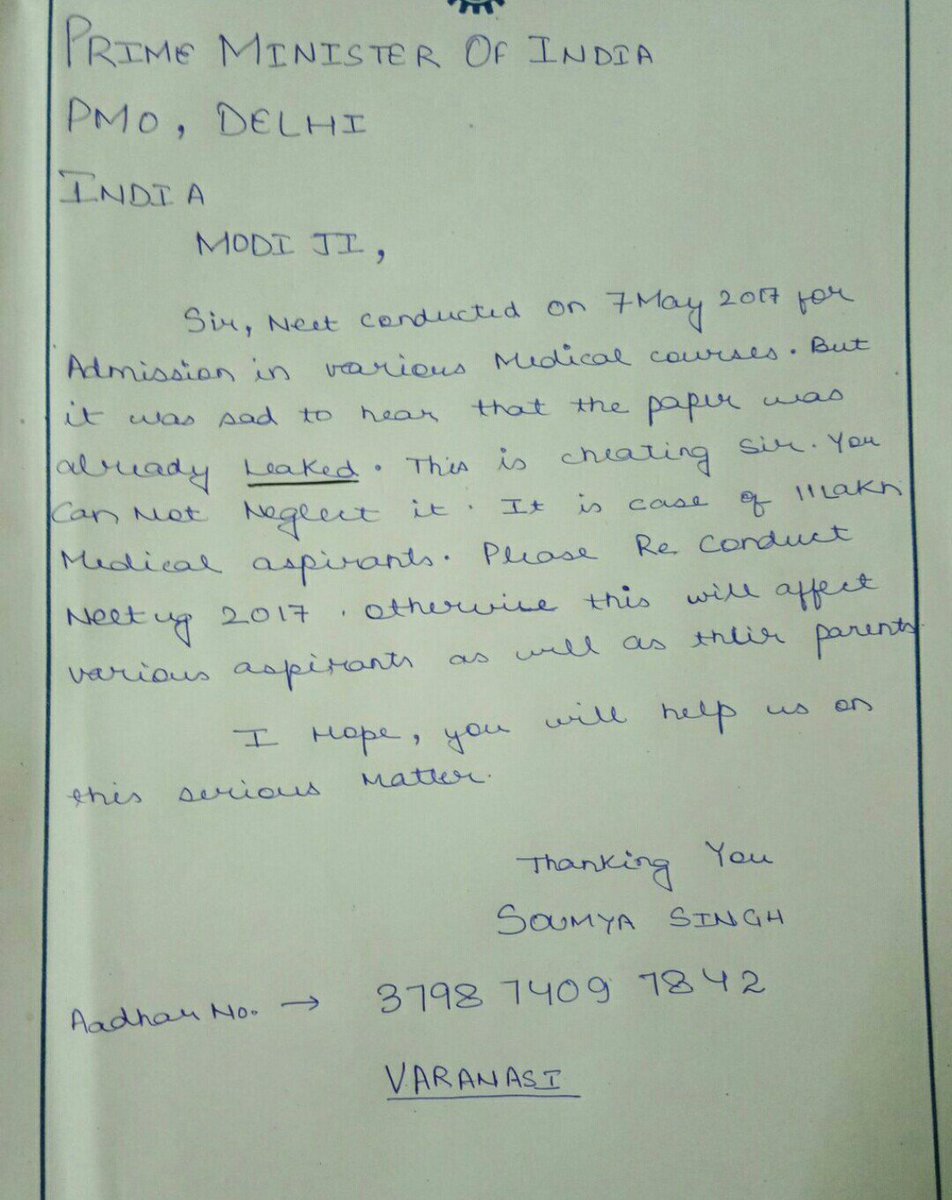 PRIME MINISTER OF INDIA
PMO, DELHI
INDIA
MODI JI,
Sir, Neet conducted on 7 May 2017 for
Admission in various Medical courses. But
it was sad to hear that the paper was
already Leaked. This is cheating sir. You
Can Not Neglect it. It is case of 11 Lakh
Medical aspirants. Please Re Conduct
Neet ug 2017. Otherwise this will affect
various aspirants as well as their parents
I Hope, you will help us on
this serious Matter.
Thanking You
SOUMYA SINGH
Aadhar No. → 3798 7409 7842
VARANASI